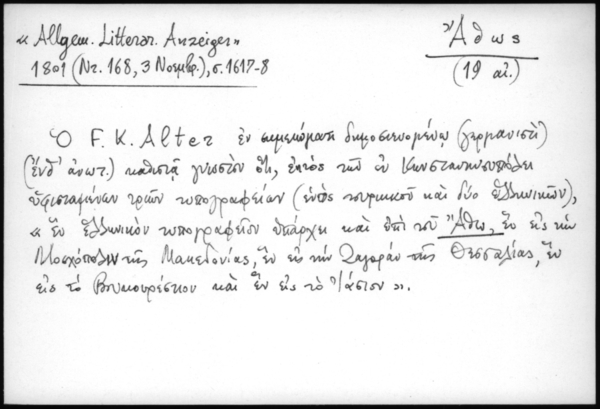 « Allgem. Litterar. Anzeiger»
1801 (Nr. 168, 3 Νοεμβρ.), σ. 1617-8
Ἄθως
(19 αἰ.)
Ὁ F. K. Alter ἐν σημειώματι δημοσιευομένῳ (γερμανιστὶ)
(ἔνθ' ἀνωτ.) καθιστᾷ γνωστὸν ὅτι, ἐκτὸς τῶν ἐν Κωνσταντινουπόλει
ὑφισταμένων τριῶν τυπογραφείων (ἑνὸς τουρκικοῦ καὶ δύο ἑλληνικῶν),
« ἓν ἑλληνικὸν τυπογραφεῖον ὑπάρχει καὶ ἐπὶ τοῦ Ἄθω, ἓν εἰς τὴν
Μοσχόπολιν τῆς Μακεδονίας, ἓν εἰς τὴν Ζαγορὰν τῆς Θεσσαλίας, ἓν
εἰς τὸ Βουκουρέστιον καὶ ἓν εἰς τὸ Ἰάσιον ».